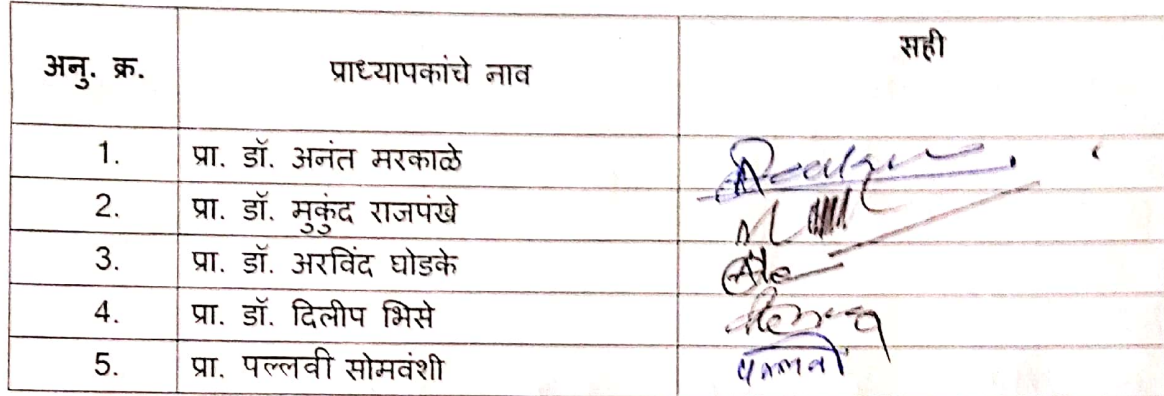 अनु. क्र. प्राध्यापकांचे नाव सही
1. प्रा. डॉ. अनंत मरकाळे
2. प्रा. डॉ. मुकुंद राजपंखे
3. प्रा. डॉ. अरविंद घोडके
4. प्रा. डॉ. दिलीप भिसे
5. प्रा. पल्लवी सोमवंशी पल्लवी